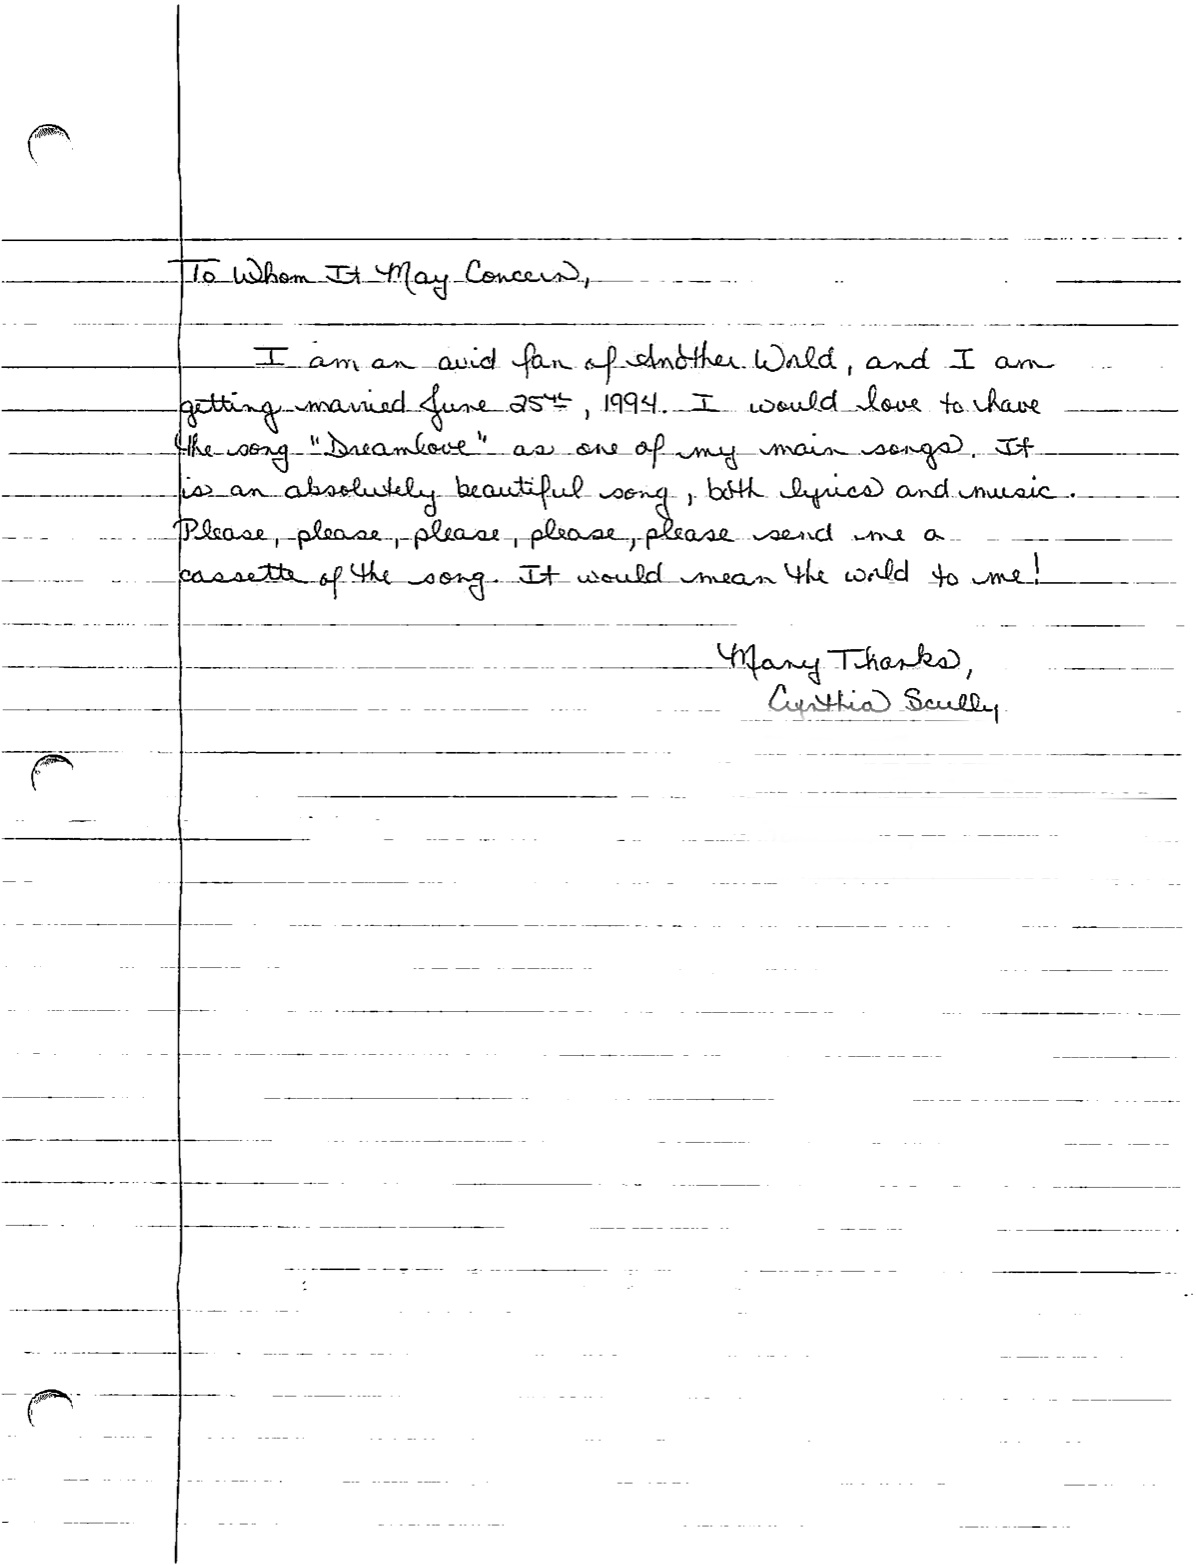 To Whom It May Concern,
I am an avid fan of Another World, and I am
getting married June 25th, 1994. I would love to have
the song "Dreamlove" as one of my main songs. It
is an absolutely beautiful song, both lyrics and music.
Please, please, please, please, please send me a
cassette of the song. It would mean the world to me!
Many Thanks,
Cynthia Scully